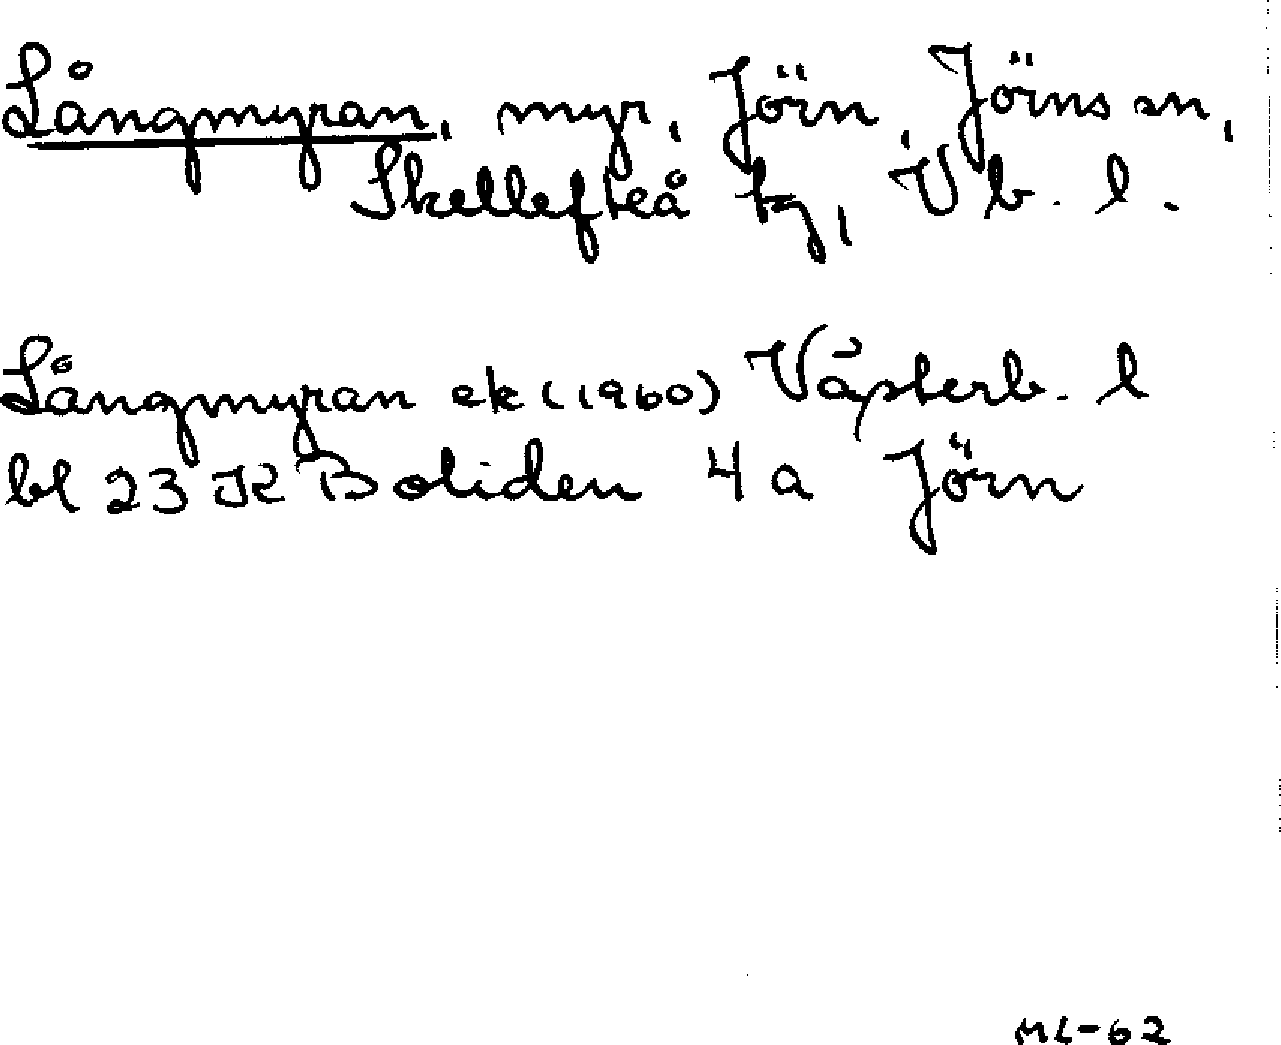 Långmyran, myr, Jörn, Jörns sn,
Skellefteå tg, Vb. l.
Långmyran ek (1960) Västerb. l
bl 23 JK Boliden 4 a Jörn
ML-62